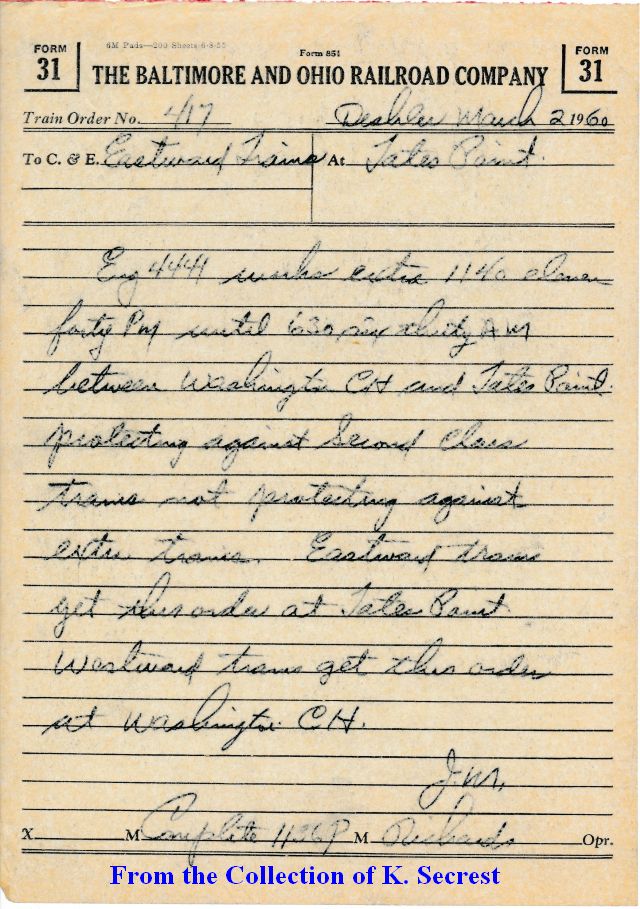 6M Pads—200 Sheets-6-8-55
FORM 31
Form 851
FORM 31
THE BALTIMORE AND OHIO RAILROAD COMPANY
Train Order No. 417 Deshler March 2 1960
To C. & E. Eastward Trains At Tates Point.
Eng 4441 works extra 1140 eleven
forty PM until 630 six thirty AM
between Washington CH and Tates Point.
protecting against Second Class
trains not protecting against
extra trains. Eastward trains
get this order at Tates Point
Westward trains get this order
at Washington CH.
X M Complete 1136P M Richards Opr.
From the Collection of K. Secrest